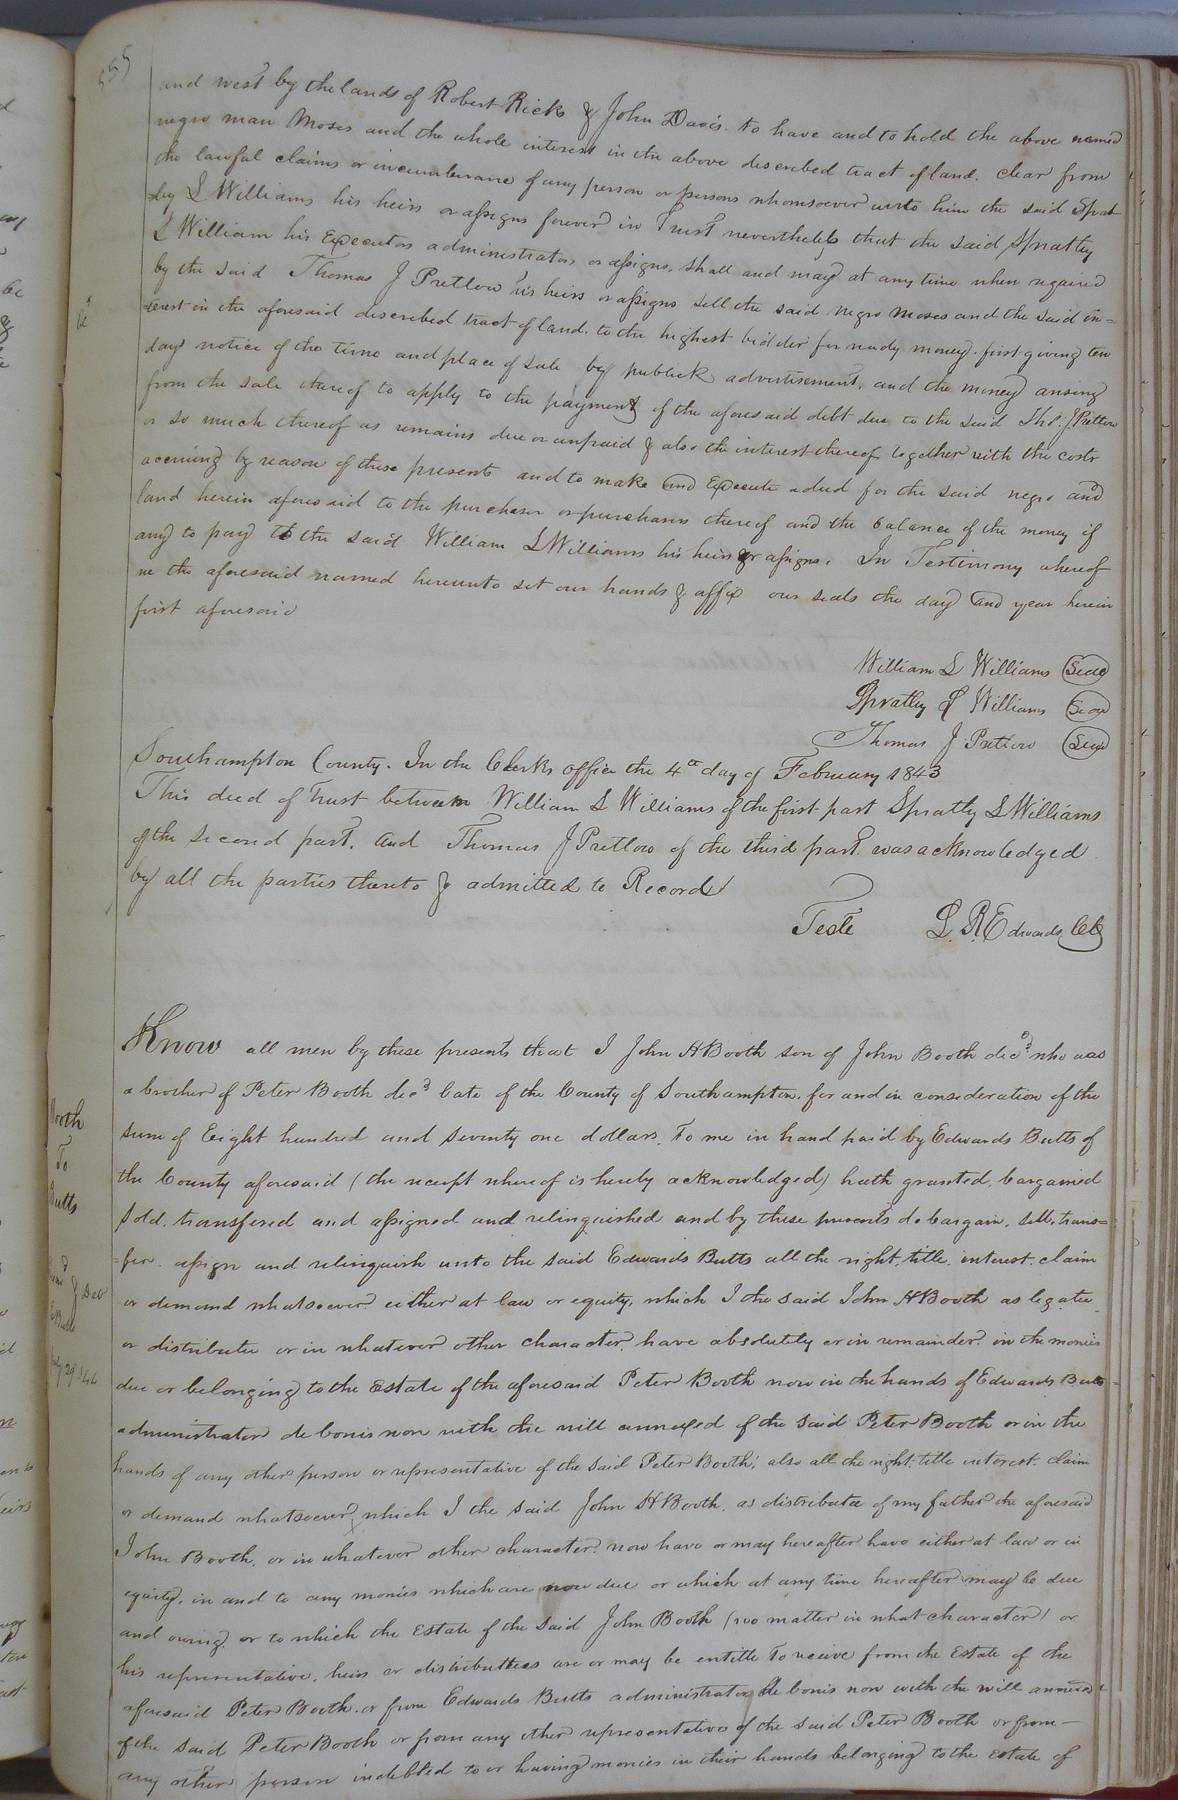 555
and west by the lands of Robert Ricks & John Davis. to have and to hold the above named
negro man Moses and the whole interest in the above described tract of land. clear from
the lawful claims or incumberance of any person or persons whomsoever unto him the said Sprat-
ley S Williams his heirs or assigns forever in Trust nevertheless that the said Spratley
S William his Executors administrators or assigns, shall and may at any time when required
by the said Thomas J Pretlow his heirs or assigns sell the said negro Moses and the said in=
terest in the aforesaid described tract of land. to the highest bidder for ready money. first giving ten
days notice of the time and place of sale by publick advertisement, and the money arising
from the sale thereof to apply to the payment of the aforesaid debt due to the said Tho. J Pretlow
or so much thereof as remains due or unpaid & also the interest thereof together with the costs
accruing by reason of these presents and to make and Execute a deed for the said negro and
land herein aforesaid to the purchaser or purchasers thereof and the balance of the money if
any to pay to the said William S Williams his heirs or assigns. In Testimony whereof
we the aforesaid named hereunto set our hands & affix our seals the day and year herein
first aforesaid
William S Williams Seal
Spratley S Williams Seal
Thomas J Pretlow Seal
Southampton County. In the Clerks office the 4th day of February 1843
This deed of Trust between William S Williams of the first part Spratly S Williams
of the second part. and Thomas J Pretlow of the third part was acknowledged
by all the parties thereto & admitted to Record
Teste L. R. Edwards Clk
Know all men by these presents that I John H Booth son of John Booth decd. who was
a brother of Peter Booth decd late of the County of Southampton, for and in consideration of the
sum of Eight hundred and seventy one dollars. To me in hand paid by Edwards Butts of
the County aforesaid (the receipt whereof is hereby acknowledged) hath granted, bargained
Sold, transfered and assigned and relinquished and by these presents do bargain, sell, trans=
=fer. assign and relinquish unto the said Edwards Butts all the right, title, interest, claim
or demand whatsoever either at law or equity, which I the said John H Booth as legatee
or distributee or in whatever other character, have absolutely or in remainder in the monies
due or belonging to the Estate of the aforesaid Peter Booth now in the hands of Edwards Butts
administrator de bonis non with the will annexed of the said Peter Booth or in the
hands of any other person or representative of the said Peter Booth; also all the right, title interest, claim
or demand whatsoever which I the said John H Booth, as distributee of my father the aforesaid
John Booth, or in whatever other character now have or may hereafter have either at law or in
equity, in and to any monies which are now due or which at any time hereafter may be due
and owing or to which the Estate of the said John Booth (no matter in what character) or
his representative, heirs or distributtees are or may be entitle To receive from the Estate of the
aforesaid Peter Booth. or from Edwards Butts administrator de bonis non with the will annexed
of the said Peter Booth or from any other representative of the said Peter Booth or from
any other person indebted to or having monies in their hands belonging to the Estate of
Booth
To
Butts